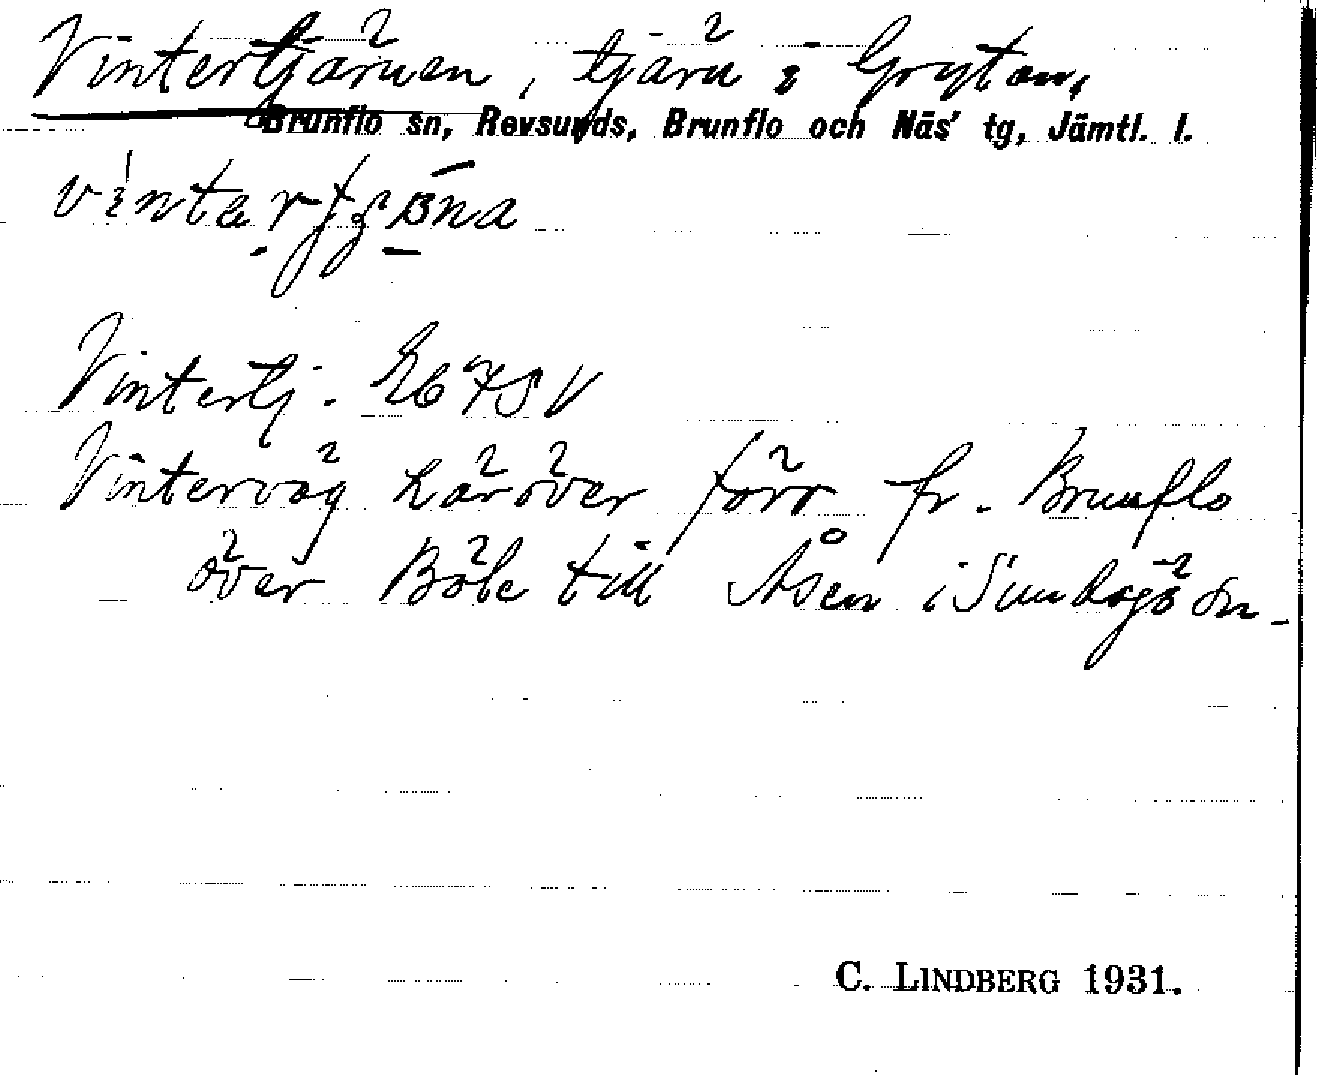 Vintertjärnen, tjärn i Grytan,
Brunflo sn, Revsunds, Brunflo och Näs' tg, Jämtl. l.
Vintertj. Eb 78 V
Vinterväg häröver förr fr. Brunflo
över Böle till Åsen i Sundsjö sn.
C. LINDBERG 1931.